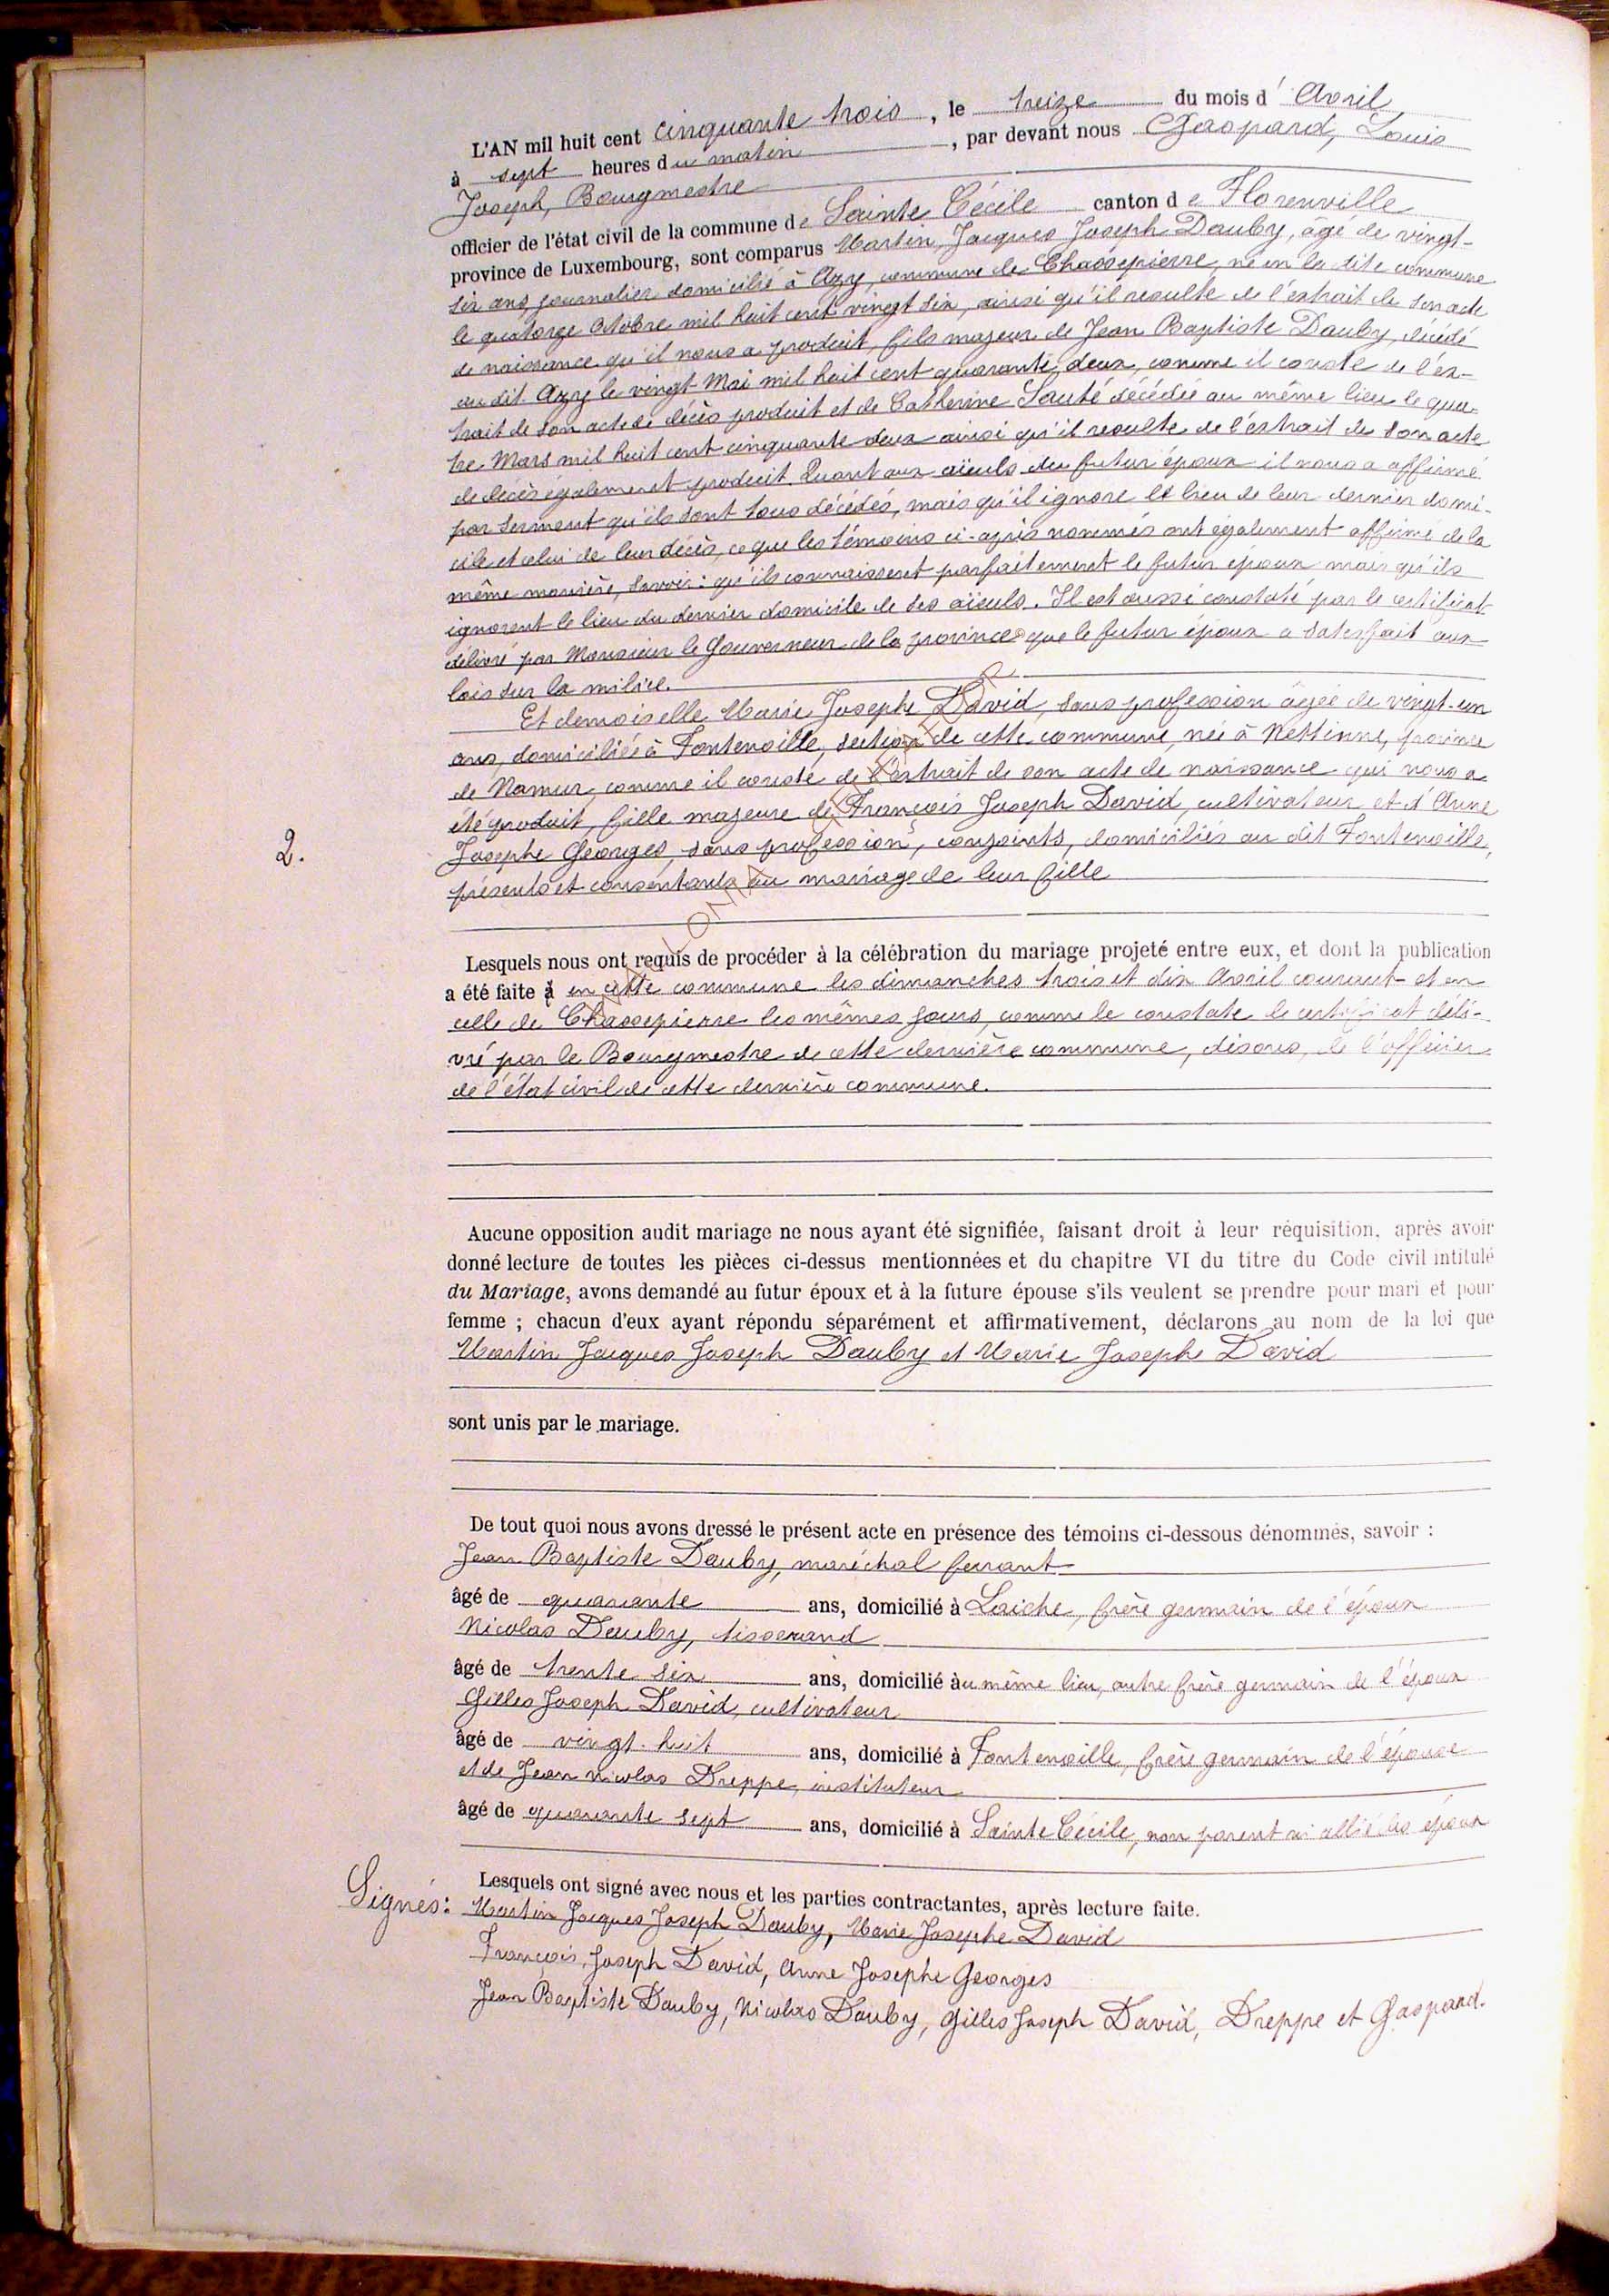 L'AN mil huit cent cinquante trois, le treize du mois d' Avril
à sept heures du matin, par devant nous Gaspard, Louis
Joseph, Bourgmestre
officier de l'état civil de la commune de Sainte Cécile canton de Florenville
province de Luxembourg, sont comparus Martin, Jacques Joseph Dauby, âgé de vingt-
six ans, journalier domicilié à Azy, commune de Chassepierre, né en la dite commune
le quatorze Octobre mil huit cent vingt six, ainsi qu'il resulte de l'extrait de son acte
de naissance qu'il nous a produit, fils majeur de Jean Baptiste Dauby, décédé
au dit Azy le vingt Mai mil huit cent quarante deux, comme il conste de l'ex-
trait de son acte de décès produit et de Catherine Sauté décédée au même lieu le qua-
tre Mars mil huit cent cinquante deux ainsi qu'il resulte de l'extrait de son acte
de décès également produit. Quant aux aïeuls du futur époux il nous a affirmé
par serment qu'ils sont tous décédés, mais qu'il ignore le lieu de leur dernier domi-
cile et celui de leur décès, ce que les témoins ci-après nommés ont également affirmé de la
même manière, savoir: qu'ils connaissent parfaitement le futur époux mais qu'ils
ignorent le lieu du dernier domicile de ses aïeuls. Il est aussi constaté par le certificat
délivré par Monsieur le Gouverneur de la province que le futur époux a satisfait aux
lois sur la milice.
Et demoiselle Marie Josephe David, sans profession âgée de vingt-un
ans, domiciliée à Fontenoille, section de cette commune, née à Nettinne, province
de Namur, comme il conste de l'extrait de son acte de naissance qui nous a
été produit, fille majeure de François Joseph David, cultivateur et d'Anne
2.
Josephe Georges, sans profession, conjoints, domiciliés au dit Fontenoille,
présents et consentants au mariage de leur fille
Lesquels nous ont requis de procéder à la célébration du mariage projeté entre eux, et dont la publication
a été faite à en cette commune les dimanches trois et dix Avril courant et en
celle de Chassepierre les mêmes jours, comme le constate le certificat déli-
vré par le Bourgmestre de cette dernière commune, disons, de l'officier
de l'état civil de cette dernière commune.
Aucune opposition audit mariage ne nous ayant été signifiée, faisant droit à leur réquisition, après avoir
donné lecture de toutes les pièces ci-dessus mentionnées et du chapitre VI du titre du Code civil intitulé
du Mariage, avons demandé au futur époux et à la future épouse s'ils veulent se prendre pour mari et pour
femme ; chacun d'eux ayant répondu séparément et affirmativement, déclarons au nom de la loi que
Martin Jacques Joseph Dauby et Marie Josephe David
sont unis par le mariage.
De tout quoi nous avons dressé le présent acte en présence des témoins ci-dessous dénommés, savoir :
Jean Baptiste Dauby, maréchal ferrant
âgé de quarante ans, domicilié à Laiche, frère germain de l'époux
Nicolas Dauby, tisserand
âgé de trente six ans, domicilié au même lieu, autre frère germain de l'époux
Gilles Joseph David, cultivateur
âgé de vingt-huit ans, domicilié à Fontenoille, frère germain de l'épouse
et de Jean Nicolas Dreppe, instituteur
âgé de quarante sept ans, domicilié à Sainte Cécile, non parent ni allié des époux
Lesquels ont signé avec nous et les parties contractantes, après lecture faite.
Signés: Martin Jacques Joseph Dauby, Marie Josephe David
François, Joseph David, Anne Josephe Georges
Jean Baptiste Dauby, Nicolas Dauby, Gilles Joseph David, Dreppe et Gaspard.